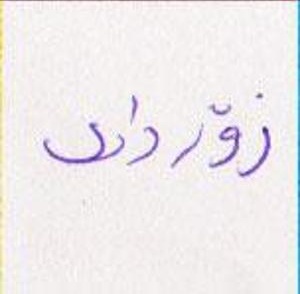 زۆر دای